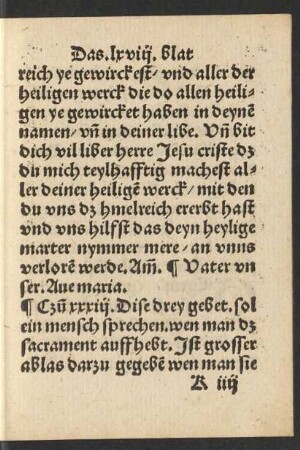 Das.lxviij. blat
reich ye gewirckest/ vnd aller der
heiligen werck die do allen heili-
gen ye gewircket haben in deynē
namen/ vñ in deiner libe. Vñ bit
dich vil liber herre Jesu criste dz
du mich teylhafftig machest al-
ler deiner heiligē werck/ mit den
du vns dz hmelreich ererbt hast
vnd vns hilfst das deyn heylige
marter nymmer mere/ an vnns
verlorē werde. Am̄. ¶ Vater vn
ser. Aue maria.
¶ Czū xxxiij. Dise drey gebet. sol
ein mensch sprechen. wen man dz
sacrament auffhebt. Ist grosser
ablas darzu gegebē wen man sie
K iiij